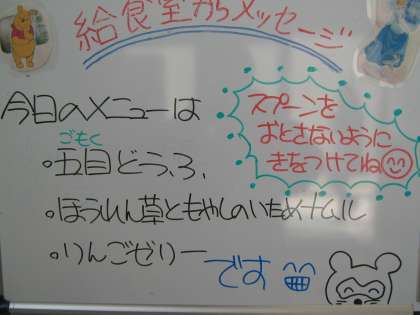 給食室からメッセージ
今日のメニューは
ごもく
・五目どうふ、
・ほうれん草ともやしのいためナムル
・りんごゼリー
です
スプーンを
おとさないように
きをつけてね